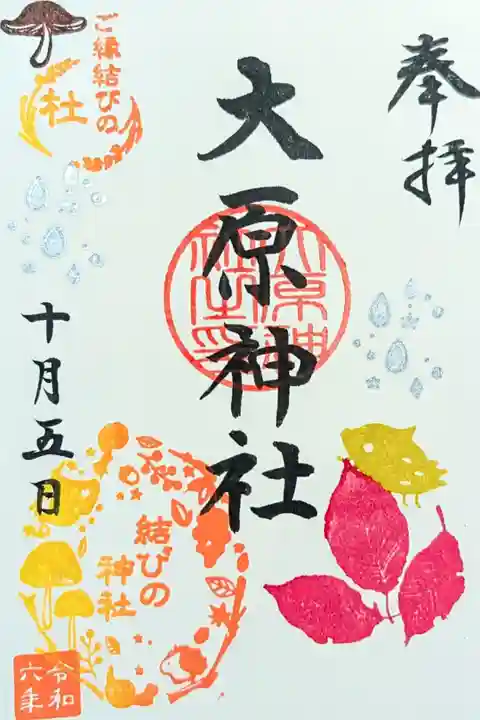 奉拝
大原神社
ご縁結びの
社
十月五日
結びの
神社
令和
六年